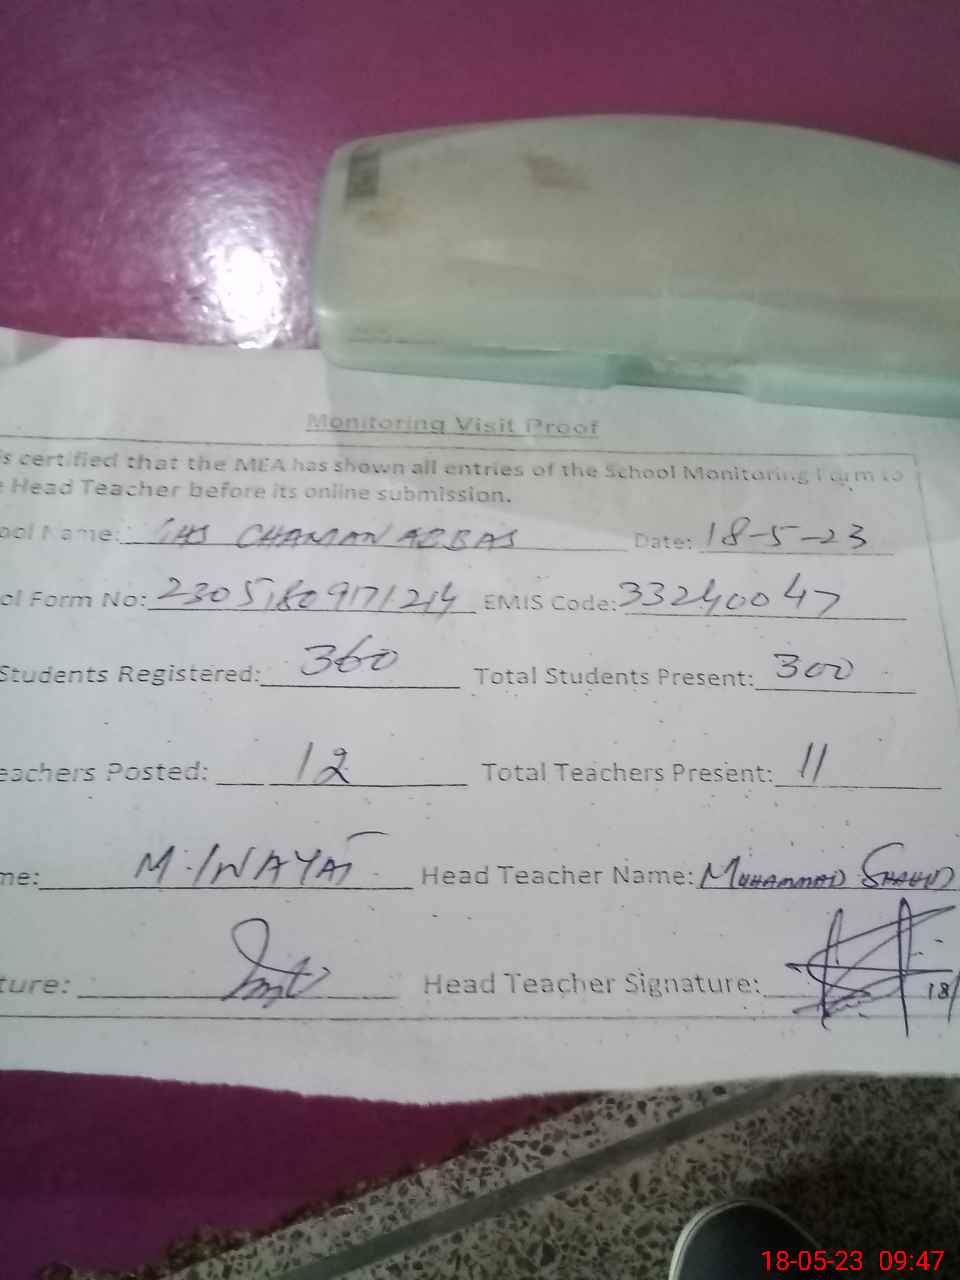 Monitoring Visit Proof
is certified that the MEA has shown all entries of the School Monitoring Form to
e Head Teacher before its online submission.
ool Name: GHS CHAMAN ABBAS Date: 18-5-23
ol Form No: 23051809171214 EMIS Code: 33240047
Students Registered: 360 Total Students Present: 300
eachers Posted: 12 Total Teachers Present: 11
me: M. INAYAT Head Teacher Name: MUHAMMAD SHAHID
ture: Head Teacher Signature: 18/
18-05-23 09:47